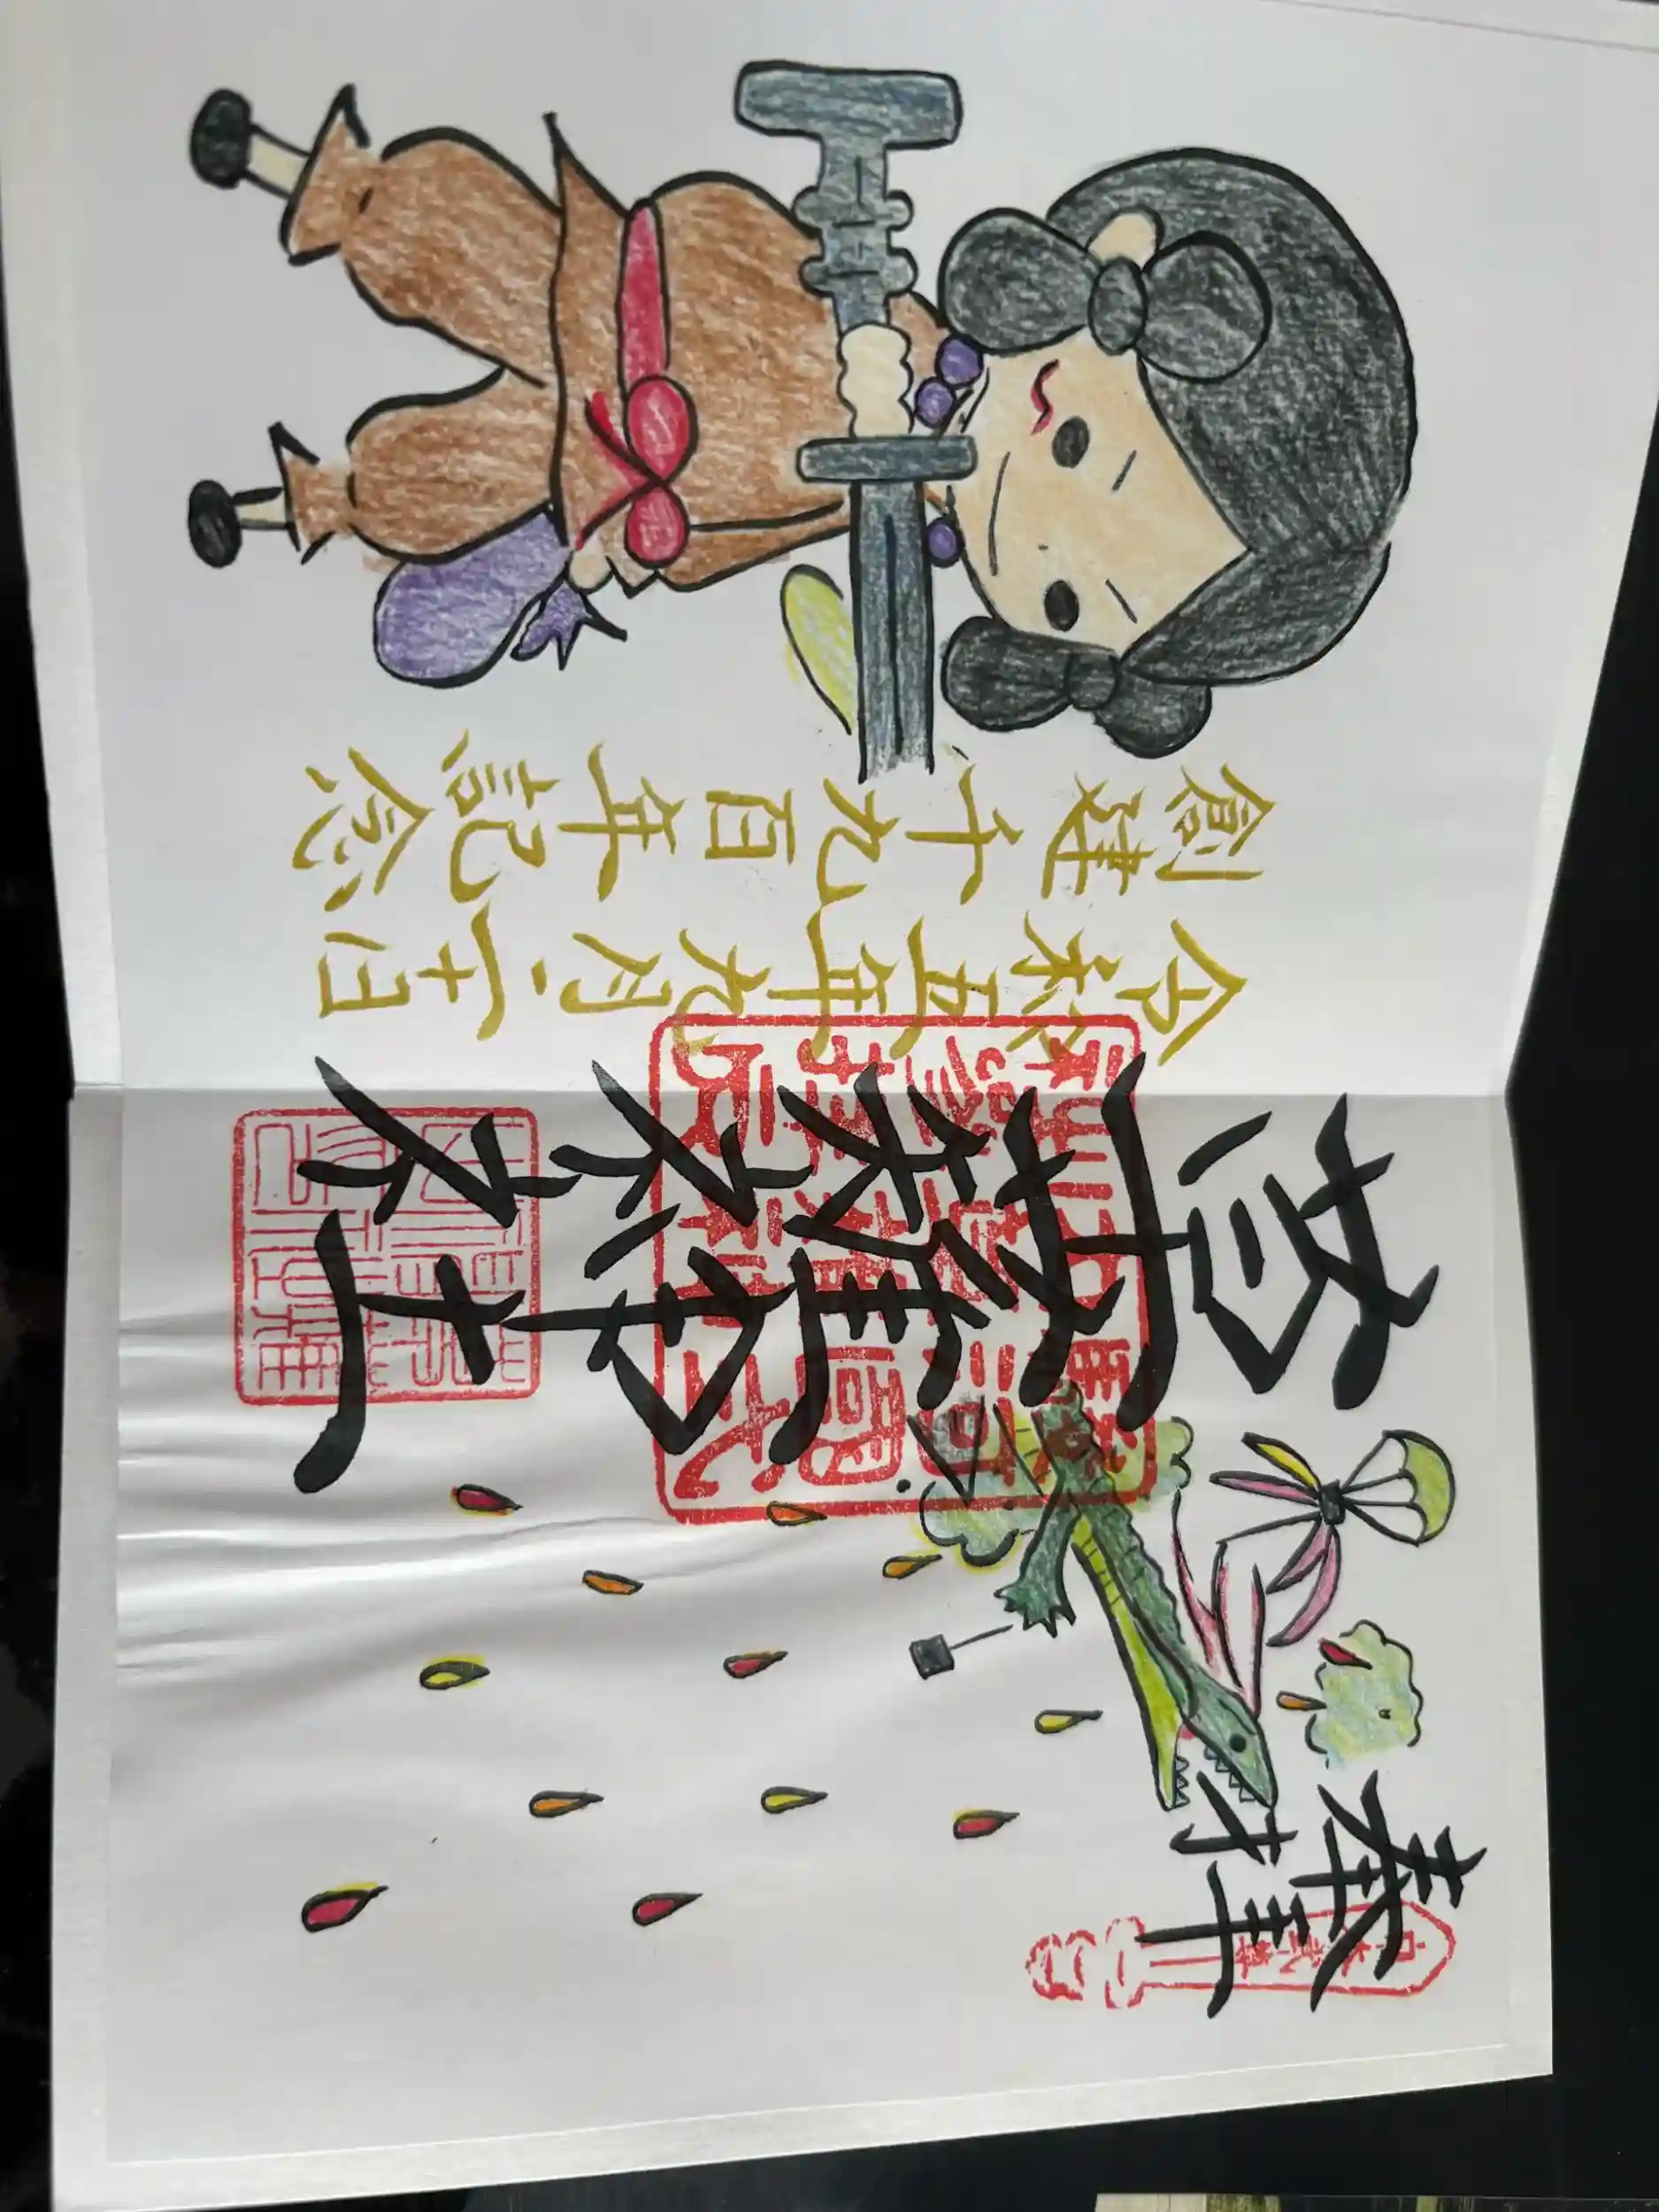 奉拝
草薙神社
令和五年九月二十日
創建千九百年記念